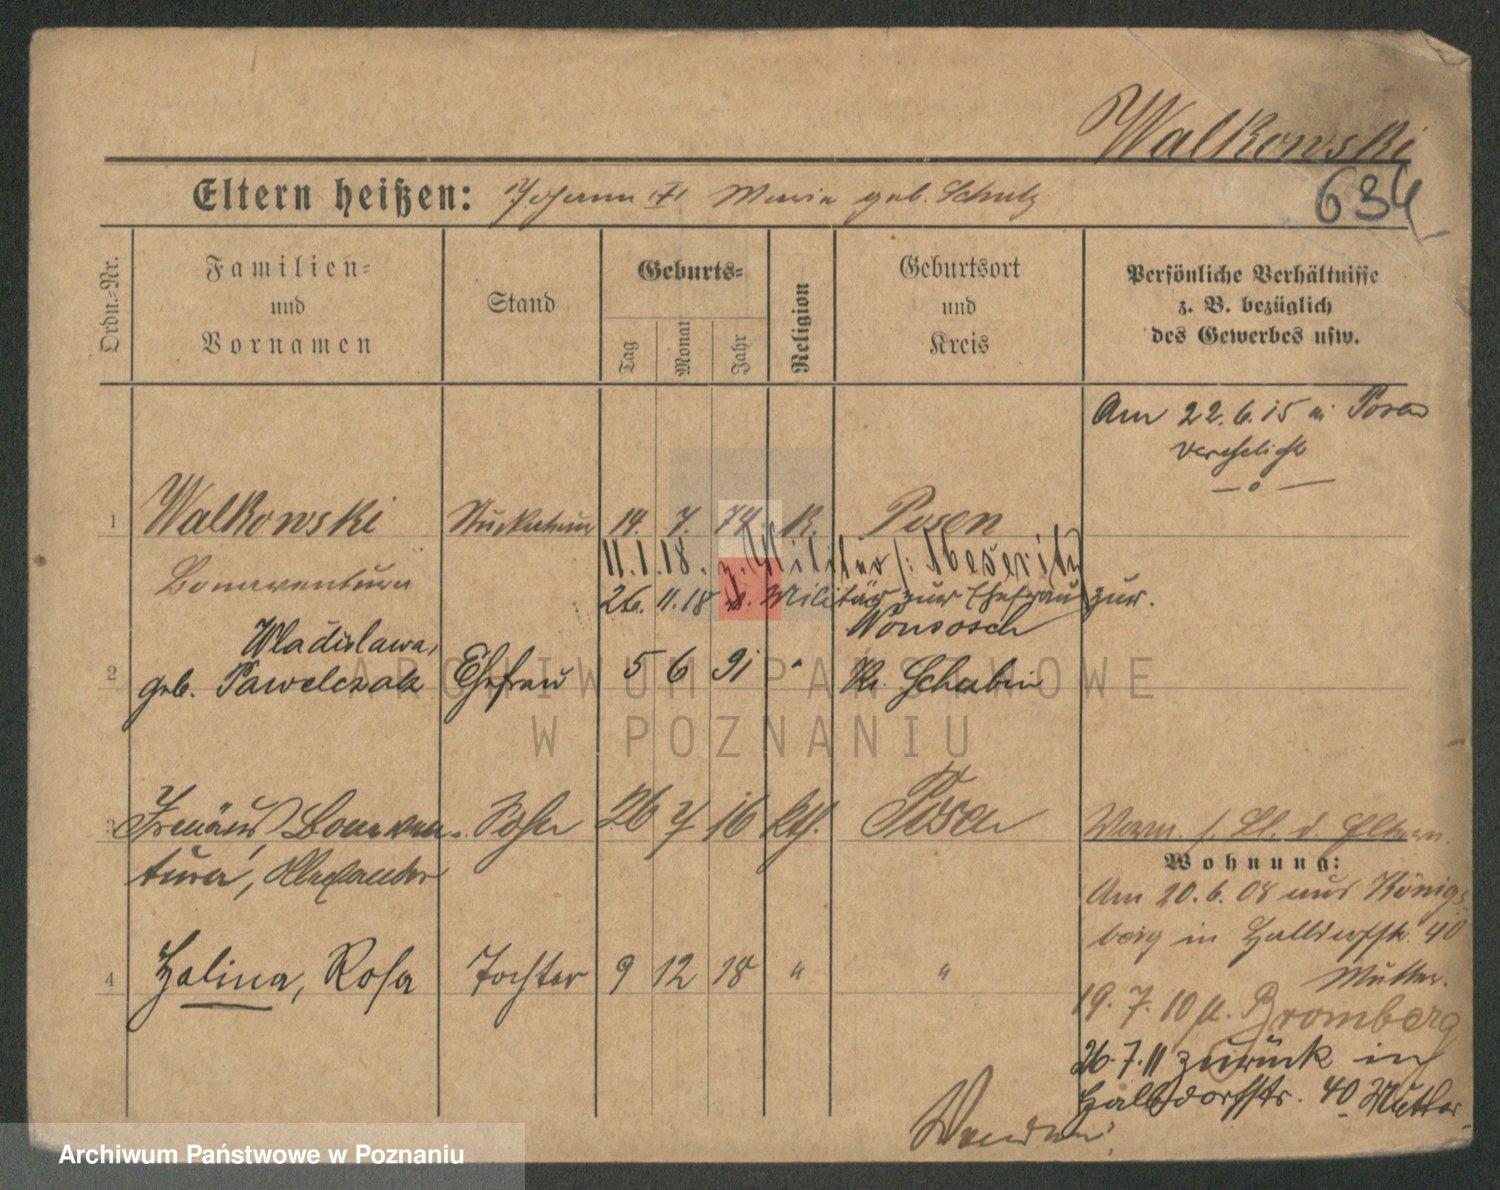 Walkowski
634
Eltern heißen: Johann (†) Maria geb. Schulz
Ordn.-Nr.
Familien-
und
Vornamen
Stand
Geburts-
Tag
Monat
Jahr
Religion
Geburtsort
und
Kreis
Persönliche Verhältnisse
z. B. bezüglich
des Gewerbes usw.
Am 22.6.15 in Posen
verehelicht
1 Walkowski Stuckateur 14. 7. K. Posen
Bonaventura
11.1.18. z. Militär Meseritz
26. 11. 18 v. Militär zur Ehefrau zur.
Wladislawa, Wonsosch
2 geb. Pawelczak Ehefrau 5 6 91 " Kr. Schubin
3 Irenäus Bonaven- Sohn 26 7 16 kth. Posen
tura, Alexander
d. Eltern
Wohnung:
Am 20.6.08 aus Königs-
berg in Halbdorfstr. 40
Mutter.
4 Halina, Rosa Tochter 9 12 18 " "
19. 7. 10 Bromberg
26.7.11 zurück in
Halbdorfstr. 40 Mutter
Wenden!
ARCHIWUM PAŃSTWOWE
W POZNANIU
Archiwum Państwowe w Poznaniu